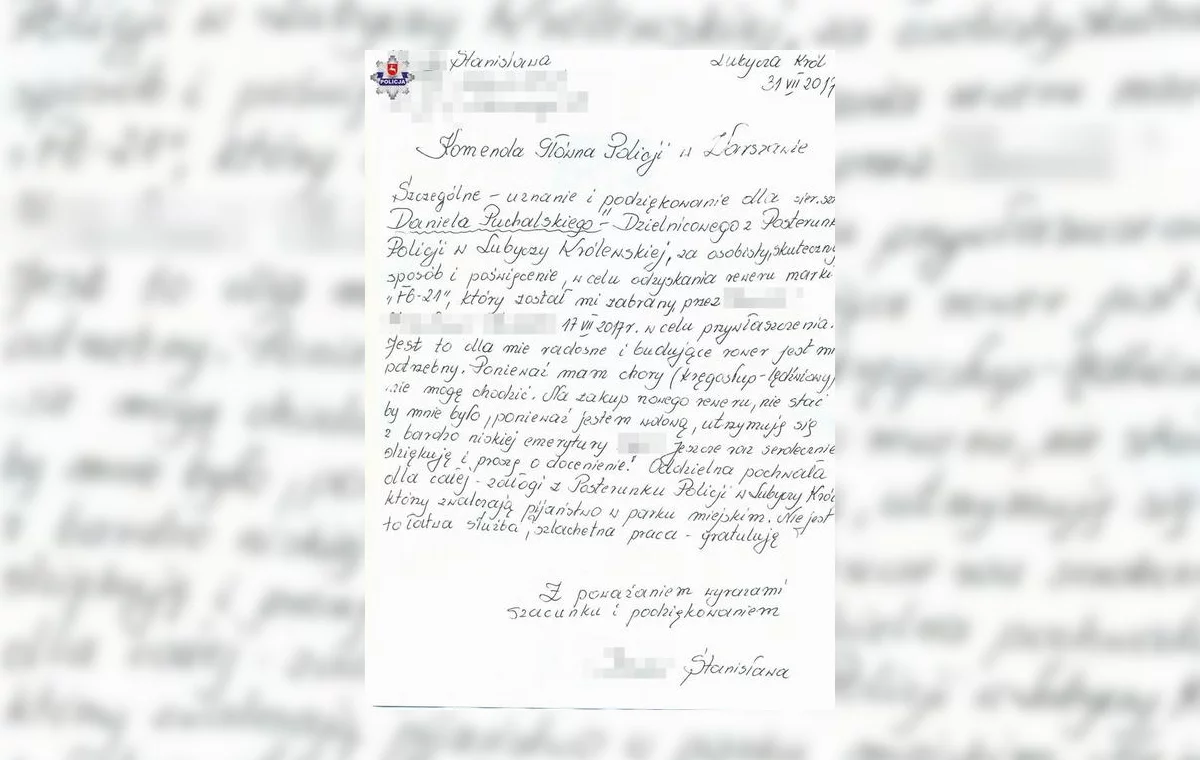 Stanisława
Lubycza Król
31 VII 201
POLICJA
Komenda Główna Policji w Warszawie
Szczególne - uznanie i podziękowanie dla sier.
Daniela Puchalskiego" - Dzielnicowego z Posterunk
Policji w Lubyczy Królewskiej, za osobisty, skuteczny
sposób i poświęcenie, w celu odzyskania roweru marki
"FB-21", który został mi zabrany, przez
17 VII 2017r. w celu przywłaszczenia.
Jest to dla mie radosne i budujące rower jest mi
potrzebny. Ponieważ mam chory (kręgosłup-lędźwiowy)
nie mogę chodzić. Na zakup nowego roweru, nie stać
by mnie było, ponieważ jestem wdową, utrzymuję się
z bardzo niskiej emerytury Jeszcze raz serdecznie
dziękuję i proszę o docenienie! Oddzielna pochwała
dla całej - załogi z Posterunku Policji w Lubyczy Król
który zwalczają pijaństwo w parku miejskim. Nie jest
to łatwa służba, szlachetna praca - gratuluję
Z poważaniem wyrazami
szacunku i podziękowaniem
Stanisława